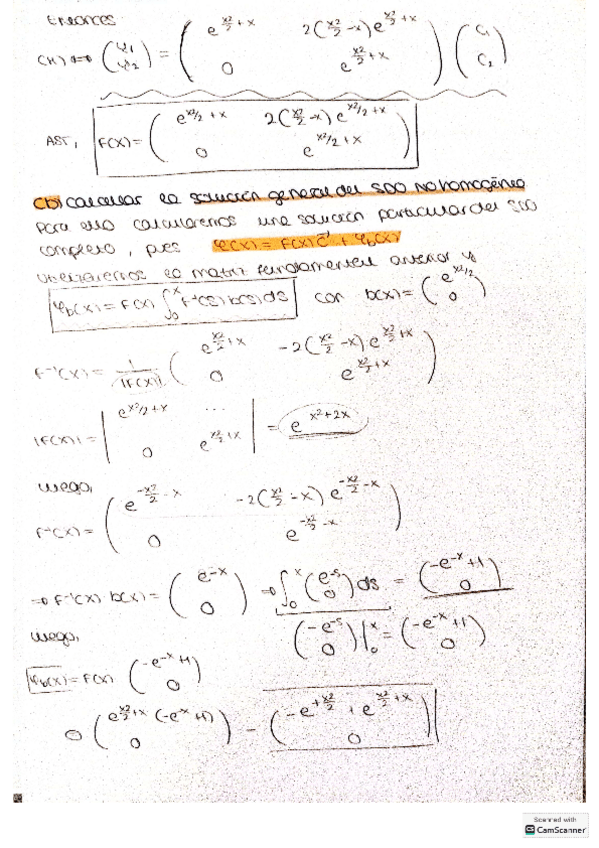 Entonces
C(x) ⇒ (φ1 φ2) = ( e^{x²/2 + x}   2(x²/2 - x) e^{x²/2 + x} ; 0   e^{x²/2 + x} ) ( C1 ; C2 )
AsT, F(x) = ( e^{x²/2 + x}   2(x²/2 - x) e^{x²/2 + x} ; 0   e^{x²/2 + x} )
Cb) calcular la solución general del SDO No homogéneo
Para ello calcularemos una solución particular del SDO
completo, pues φ(x) = F(x) c⃗ + φb(x)
utilizaremos la matriz fundamental anterior y
φb(x) = F(x) ∫_0^x F⁻¹(s) b(s) ds con b(x) = ( e^{x²/2} ; 0 )
F⁻¹(x) = 1/|F(x)| ( e^{x²/2 + x}   -2(x²/2 - x) e^{x²/2 + x} ; 0   e^{x²/2 + x} )
|F(x)| = | e^{x²/2 + x}   ... ; 0   e^{x²/2 + x} | = e^{x² + 2x}
Luego,
F⁻¹(x) = ( e^{-x²/2 - x}   -2(x²/2 - x) e^{-x²/2 - x} ; 0   e^{-x²/2 - x} )
⇒ F⁻¹(x) · b(x) = ( e^{-x} ; 0 ) ⇒ ∫_0^x ( e^{-s} ; 0 ) ds = ( -e^{-x} + 1 ; 0 )
( -e^{-s} ; 0 ) |_0^x = ( -e^{-x} + 1 ; 0 )
Luego,
φb(x) = F(x) ( -e^{-x} + 1 ; 0 )
( e^{x²/2 + x} (-e^{-x} + 1) ; 0 ) = ( -e^{+x²/2} + e^{x²/2 + x} ; 0 )
Scanned with
CamScanner